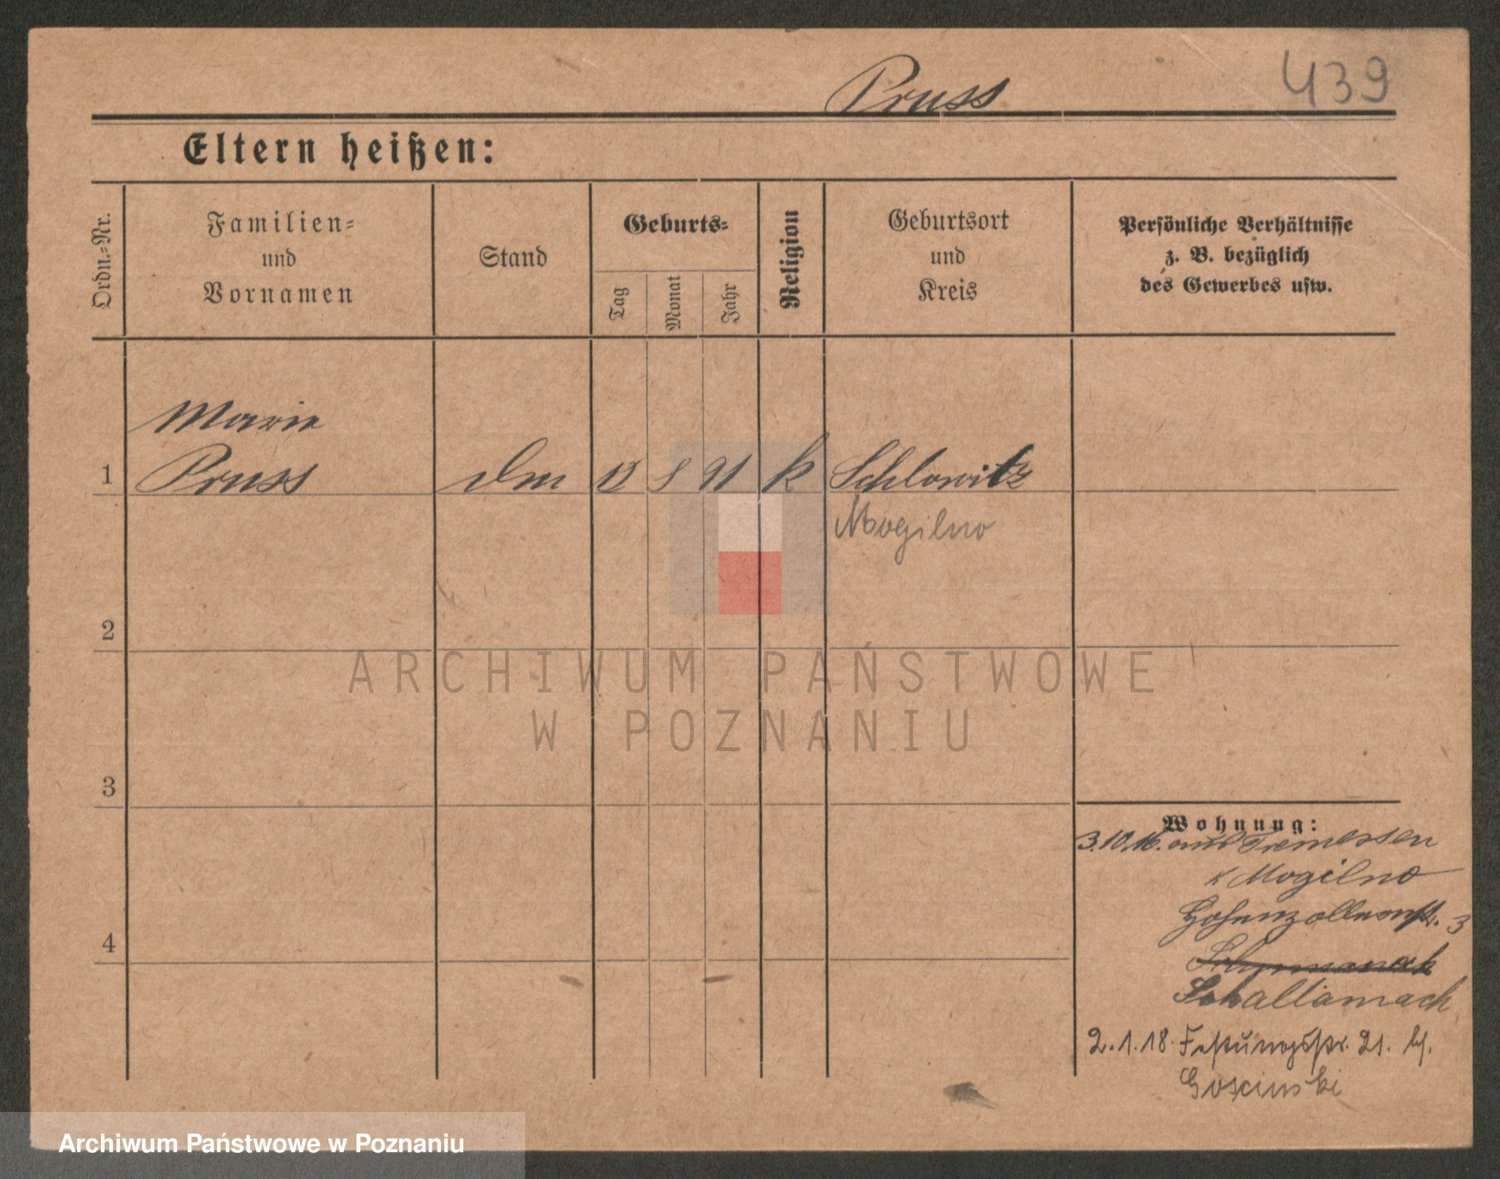 Pruss 439
Eltern heißen:
Ordn.-Nr.
Familien-
und
Vornamen
Stand
Geburts-
Tag
Monat
Jahr
Religion
Geburtsort
und
Kreis
Persönliche Verhältnisse
z. B. bezüglich
des Gewerbes usw.
Marie
1 Pruss 8 91 k Schlowitz
Mogilno
2
ARCHIWUM PAŃSTWOWE
W POZNANIU
3
Wohnung:
3.10.16. aus Tremessen
K Mogilno
Hohenzollernstr. 3
Schallamach
2.1.18. Festungsstr. 21. b/.
Goscinski
4
Archiwum Państwowe w Poznaniu